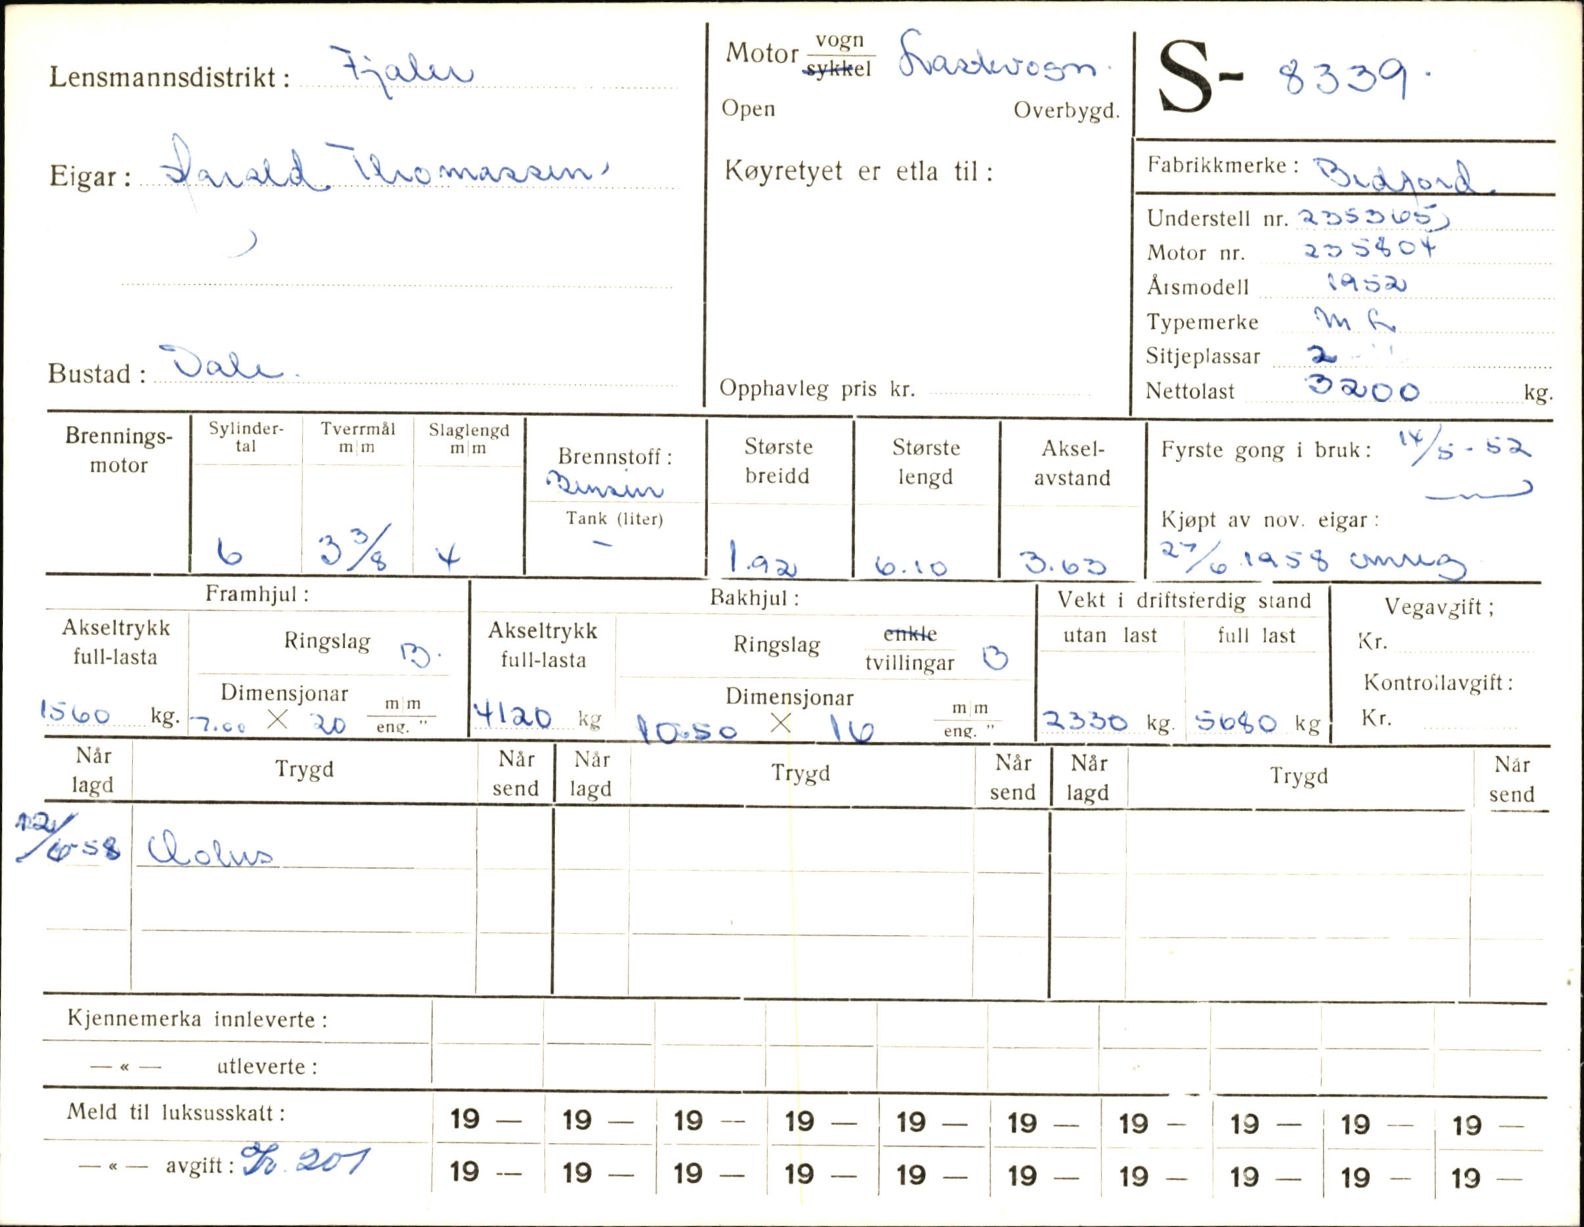 Lensmannsdistrikt: Fjaler
Eigar: Harald Thomassen,
Bustad: Dale.
Motor vogn
sykkel
Lastevogn.
Open Overbygd.
Køyretyet er etla til:
Opphavleg pris kr.
S- 8339.
Fabrikkmerke: Bedford.
Understell nr. 235365
Motor nr. 235804
Årsmodell 1952
Typemerke
Sitjeplassar 2
Nettolast 3200 kg.
Brennings-
motor
Sylinder-
tal
6
Tverrmål
m|m
3 3/8
Slaglengd
m|m
4
Brennstoff:
Bensin
Tank (liter)
—
Største
breidd
1.92
Største
lengd
6.10
Aksel-
avstand
3.63
Fyrste gong i bruk: 14/5-52
Kjøpt av nov. eigar:
27/6 1958 omreg
Framhjul:
Akseltrykk
full-lasta
1560 kg.
Ringslag B.
Dimensjonar m|m
7.00 × 20 eng. "
Bakhjul:
Akseltrykk
full-lasta
4120 kg
Ringslag enkle
tvillingar B
Dimensjonar m|m
10.50 × 16 eng. "
Vekt i driftsferdig stand
utan last full last
2330 kg. 5680 kg
Vegavgift;
Kr.
Kontrollavgift:
Kr.
Når
lagd
Trygd
Når
send
Når
lagd
Trygd
Når
send
Når
lagd
Trygd
Når
send
12/6-58 Æolus
Kjennemerka innleverte:
— « — utleverte:
Meld til luksusskatt: 19 — 19 — 19 — 19 — 19 — 19 — 19 — 19 — 19 — 19 —
— « — avgift: Kr. 201 19 — 19 — 19 — 19 — 19 — 19 — 19 — 19 — 19 — 19 —